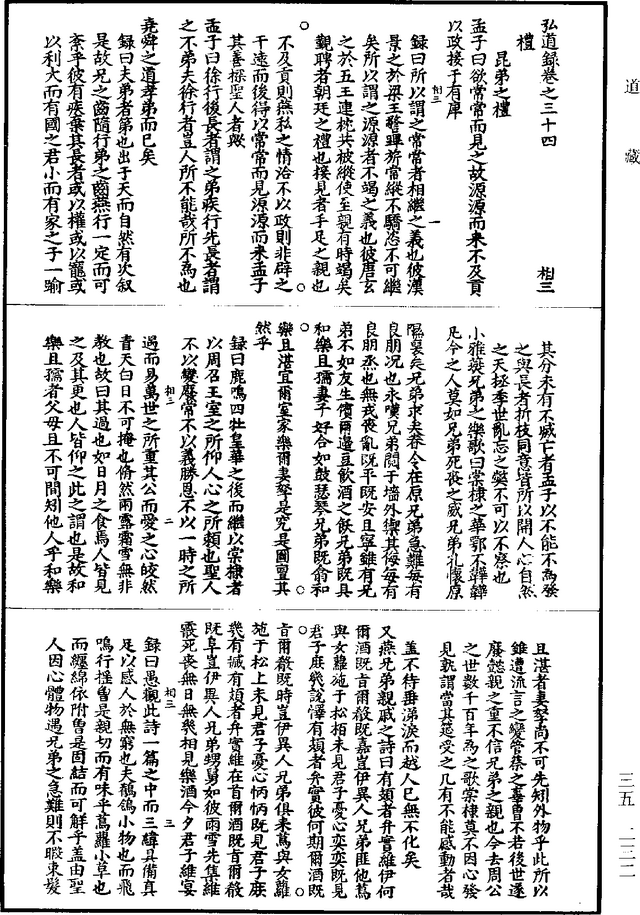 道藏
弘道録卷之三十四 相三
禮
昆弟之禮
孟子曰欲常常而見之故源源而來不及貢
以政接于有庳
録曰所以謂之常常者相繼之義也彼漢
景之於梁王警蹕旂常縱不驕恣不可繼
矣所以謂之源源者不竭之義也彼唐玄
之於五王連枕共被縱使至親有時竭矣
觀聘者朝廷之禮也接見者手足之親也
不及貢則燕私之情洽不以政則非辟之
干遠而後得以常常而見源源而來孟子
其善探聖人者歟
孟子曰徐行後長者謂之弟疾行先長者謂
之不弟夫徐行者豈人所不能哉所不為也
堯舜之道孝弟而已矣
録曰夫弟者第也出于天而自然有次叙
是故兄之齒隨行弟之齒燕行一定而可
紊乎彼有疾棄其長者或以權或以寵或
以利大而有國之君小而有家之子一踰
其分未有不滅亡者孟子以不能不為發
之與長者折枝同意皆所以開人心自然
之天極季世亂忘之獘不可以不察也
小雅燕兄弟之樂歌曰棠棣之華鄂不韡韡
凡今之人莫如兄弟死喪之威兄弟孔懷原
隰裒矣兄弟求矣脊令在原兄弟急難每有
良朋况也永嘆兄弟鬩于墻外禦其侮每有
良朋烝也無戎喪亂既平既安且寧雖有兄
弟不如友生儐爾籩豆飲酒之飫兄弟既具
和樂且孺妻子好合如鼓瑟琴兄弟既翕和
樂且湛宜爾室家樂爾妻孥是究是圖亶其
然乎
録曰鹿鳴四牡皇華之後而繼以棠棣者
以周召王室之所仰人心之所頼也聖人
不以變廢常不以義勝恩不以一時之所
過而易萬世之所重其公而愛之心皎然
青天白日不可掩也脩然雨露霜雪無非
教也故曰其過也如日月之食焉人皆見
之及其更也人皆仰之此之謂也是故和
樂且孺者父母且不可間矧他人乎和樂
且湛者妻孥尚不可先矧外物乎此所以
雖遭流言之變管蔡之辜曾不若後世遂
廢懿親之重不信兄弟之親也今去周公
之世數千百年為之歌棠棣莫不因心發
見孰謂當其筵受之几有不能感動者哉
蓋不待垂涕淚而越人已無不化矣
又燕兄弟親戚之詩曰有頍者弁實維伊何
爾酒既旨爾殽既嘉豈伊異人兄弟匪他蔦
與女蘿施于松栢未見君子憂心奕奕既見
君子庶幾說懌有頍者弁實彼何期爾酒既
旨爾殽既時豈伊異人兄弟俱來蔦與女蘿
施于松上未見君子憂心怲怲既見君子庶
幾有臧有頍者弁實維在首爾酒既旨爾殽
既阜豈伊異人兄弟甥舅如彼雨雪先集維
霰死喪無日無幾相見樂酒今夕君子維宴
録曰愚觀此詩一篇之中而三緯具備真
足以感人於無窮也夫鶺鴒小物也而飛
鳴行揺曽是親切而有味乎蔦蘿小草也
而纏綿依附曽是固結而可解乎蓋由聖
人因心體物遇兄弟之急難則不暇束髮
相三 一
相三 二
相三 三
三五 二三二